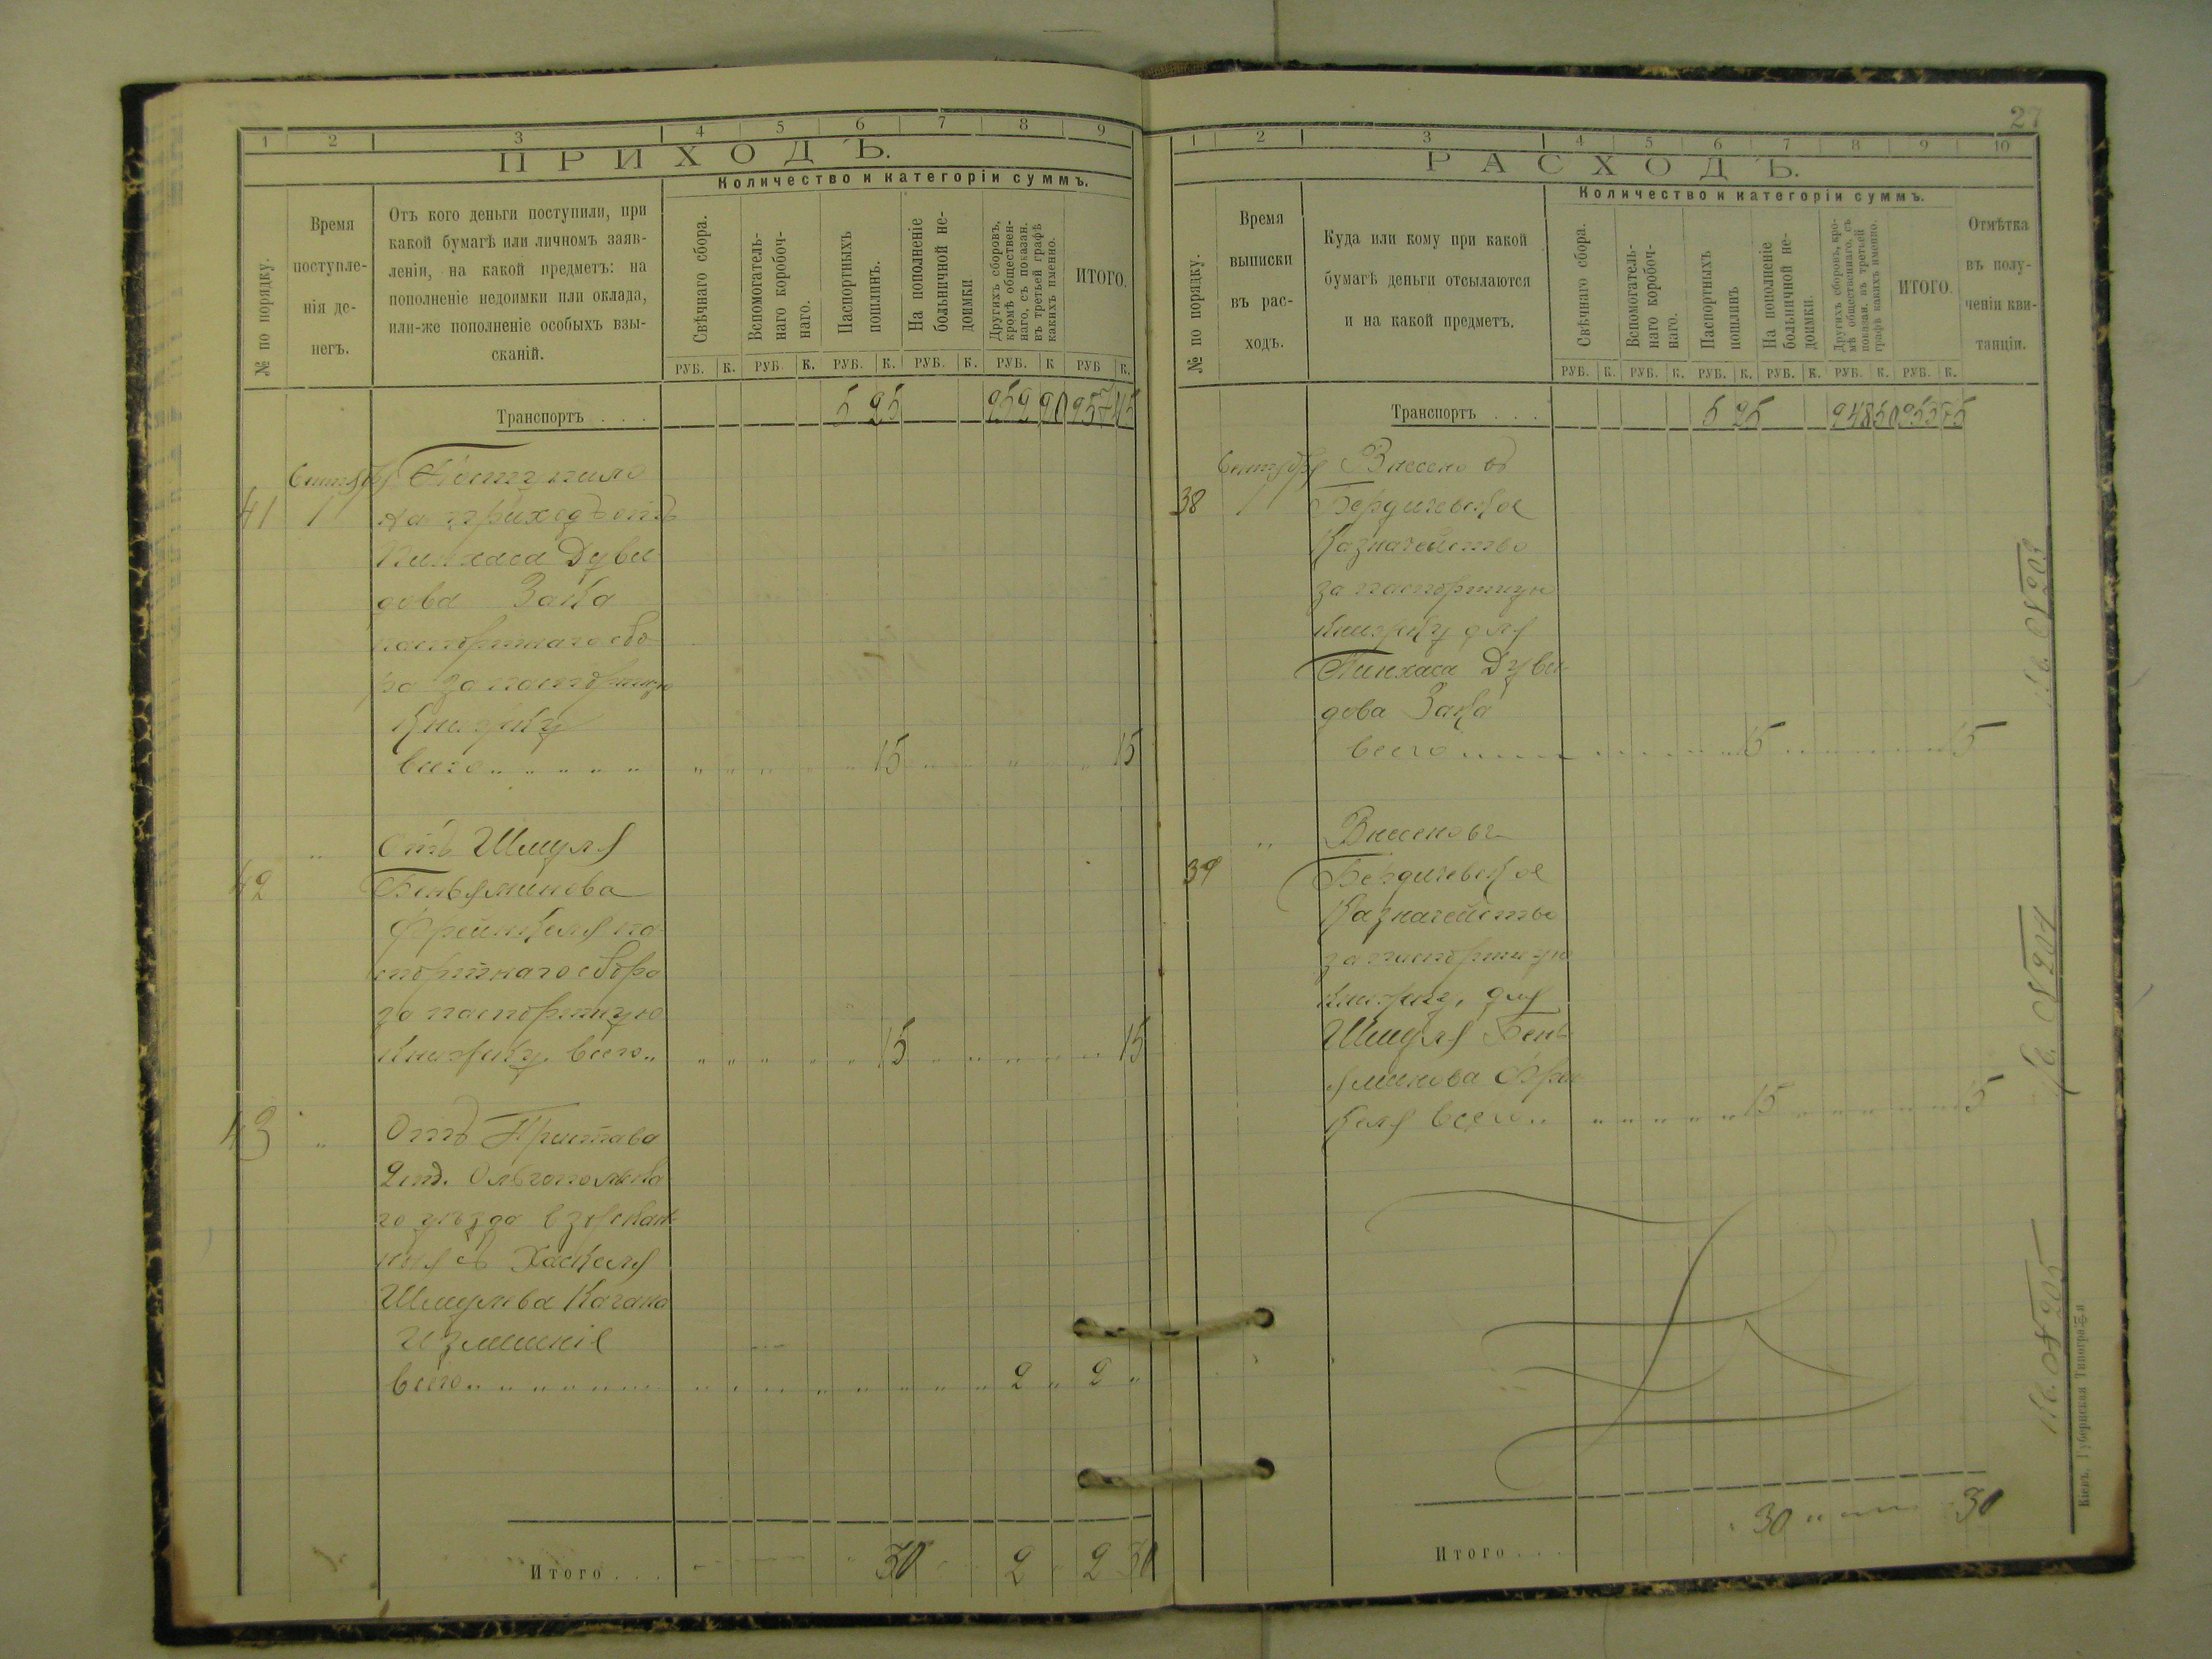 1 2 3 4 5 6 7 8 9
ПРИХОДЪ.
Количество и категоріи суммъ.
№ по порядку.
Время
поступле-
нія де-
негъ.
Отъ кого деньги поступили, при
какой бумагѣ или личномъ заяв-
леніи, на какой предметъ: на
пополненіе недоимки или оклада,
или-же пополненіе особыхъ взы-
сканій.
Свѣчнаго сбора.
Вспомогатель-
наго коробоч-
наго.
Паспортныхъ
пошлинъ.
На пополненіе
больничной не-
доимки
Другихъ сборовъ,
кромѣ обществен-
наго, съ показан.
въ третьей графѣ
какихъ именно.
ИТОГО.
РУБ. К. РУБ. К. РУБ. К. РУБ. К. РУБ. К РУБ К.
Транспортъ . . . 5 25 952 20 957 45
Сентября Поступило
41 1 на приходъ отъ
Пинхаса Дуви
дова Зака
паспортнаго сбо
ра за паспортную
книжку
всего 15 15
„ Отъ Шмуля
42 Беньяминова
Френкеля па
спортнаго сбора
за паспортную
книжку всего 15 15
43 „ Отъ Пристава
2 ст. Ольгопольска
го уѣзда взыскан
ныя съ Хаскеля
Шмулева Кагана
всего 2 „ 2 „
Итого . . . 30 2 2 30
27
1 2 3 4 5 6 7 8 9 10
РАСХОДЪ.
Количество и категоріи суммъ.
№ по порядку.
Время
выписки
въ рас-
ходъ.
Куда или кому при какой
бумагѣ деньги отсылаются
и на какой предметъ.
Свѣчнаго сбора.
Вспомогатель-
наго коробоч-
наго.
Паспортныхъ
пошлинъ
На пополненіе
больничной не-
доимки.
Другихъ сборовъ, кро-
мѣ общественнаго, съ
показан. въ третьей
графѣ какихъ именно.
ИТОГО.
Отмѣтка
въ полу-
ченіи кви-
танціи.
РУБ. К. РУБ. К. РУБ. К. РУБ. К. РУБ. К. РУБ. К.
Транспортъ . . . 5 25 948 50 953 75
Сентября Внесено въ
38 1 Бердичевское
Казначейство
за паспортную
книжку для
Пинхаса Дуви
дова Зака
всего 15 15
„ Внесено въ
39 Бердичевское
Казначейство
за паспортную
книжку, для
Шмуля Бень
яминова Френ
келя всего 15 15
Итого . . . 30 30
203
204
205
Кіевъ, Губернская Типогр